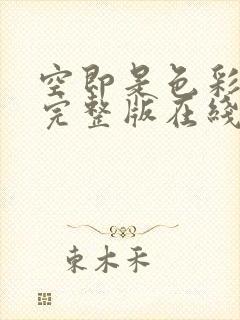 空即是色彩
完整版在线
东木禾